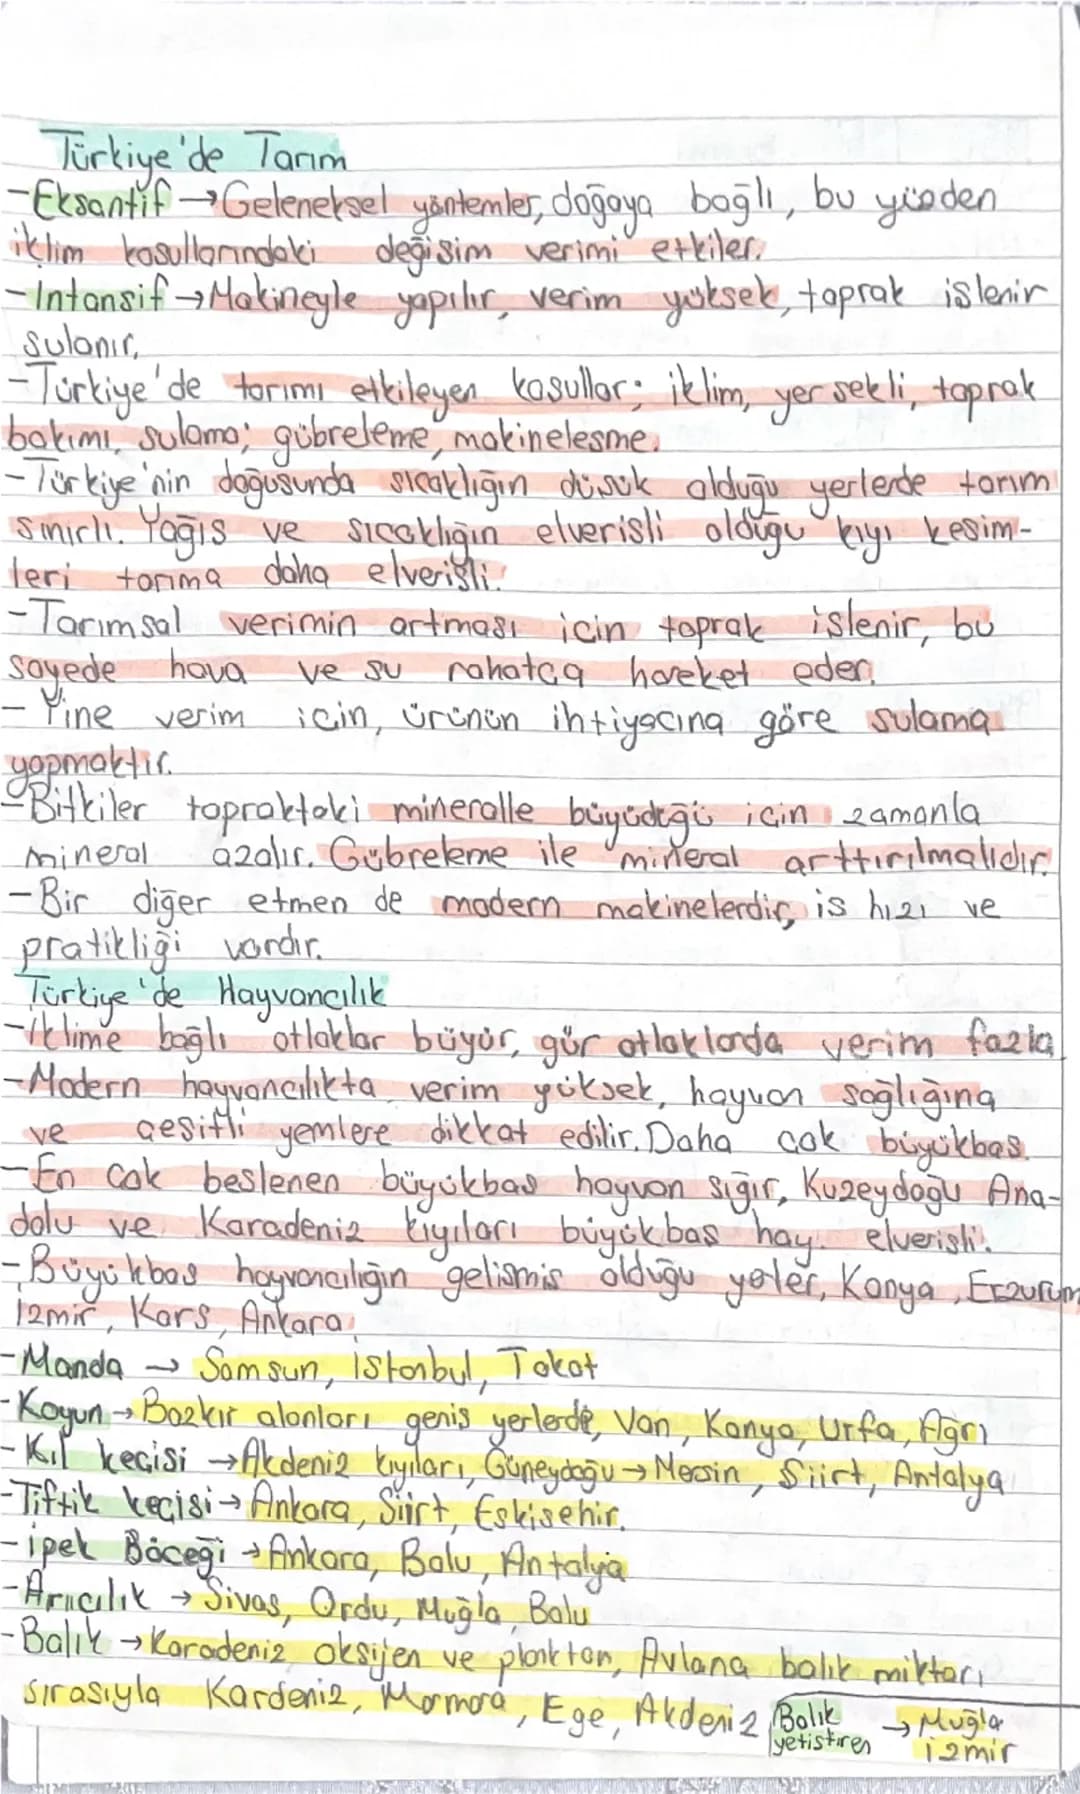 Türkiye'de Tarım
-Eksantif →Geleneksel yöntemler, doğaya bağlı, bu yüzden
iklim kosullarındaki değişim verimi etkiler.
-Intansif →Makineyle yapılır, verim yüksek, toprak islenir
sulanır.
-Türkiye'de tarımı etkileyen kosullar; iklim, yer sekli, toprak
bakımı, sulama; gübreleme, makinelesme.
-Türkiye'nin doğusunda sıcaklığın düsük olduğu yerlerde tarım
sınırlı. Yağıs ve sıcaklığın elverisli olduğu kıyı kesim-
leri tarıma daha elverişli.
-Tarımsal verimin artması icin toprak işlenir, bu
sayede hava ve su rahatça hareket eder.
- Yine verim icin, ürünün ihtiyacına göre sulama
yapmaktır.
-Bitkiler topraktaki mineralle büyüdüğü icin zamanla
mineral azalır. Gübreleme ile mineral arttırılmalıdır.
-Bir diğer etmen de modern makinelerdir, is hızı ve
pratikliği vardır.
Türkiye'de Hayvancılık
-iklime bağlı otlaklar büyür, gür otlaklarda verim fazla
-Modern hayvancılıkta verim yüksek, hayvan sağlığına
ve çesitli yemlere dikkat edilir. Daha cok büyükbas.
-En cok beslenen büyükbas hayvan sığır, Kuzeydoğu Ana-
dolu ve Karadeniz kıyıları büyükbas hay. elverisli.
-Büyükbas hayvancılığın gelismis olduğu yerler, Konya, Erzurum,
izmir, Kars, Ankara.
-Manda → Samsun, istanbul, Tokat
-Koyun →Bozkır alanları genis yerlerde, Van, Konya, Urfa, Ağrı
-Kıl kecisi →Akdeniz kıyıları, Güneydoğu→Mersin, Siirt, Antalya
-Tiftik keçisi→ Ankara, Siirt, Eskisehir.
-ipek Böceği →Ankara, Bolu, Antalya
-Arıcılık → Sivas, Ordu, Muğla, Bolu
-Balık →Karadeniz oksijen ve plankton, Avlana balık miktarı
sırasıyla Kardeniz, Marmara, Ege, Akdeniz
Balık
yetistiren
→ Muğla
izmir